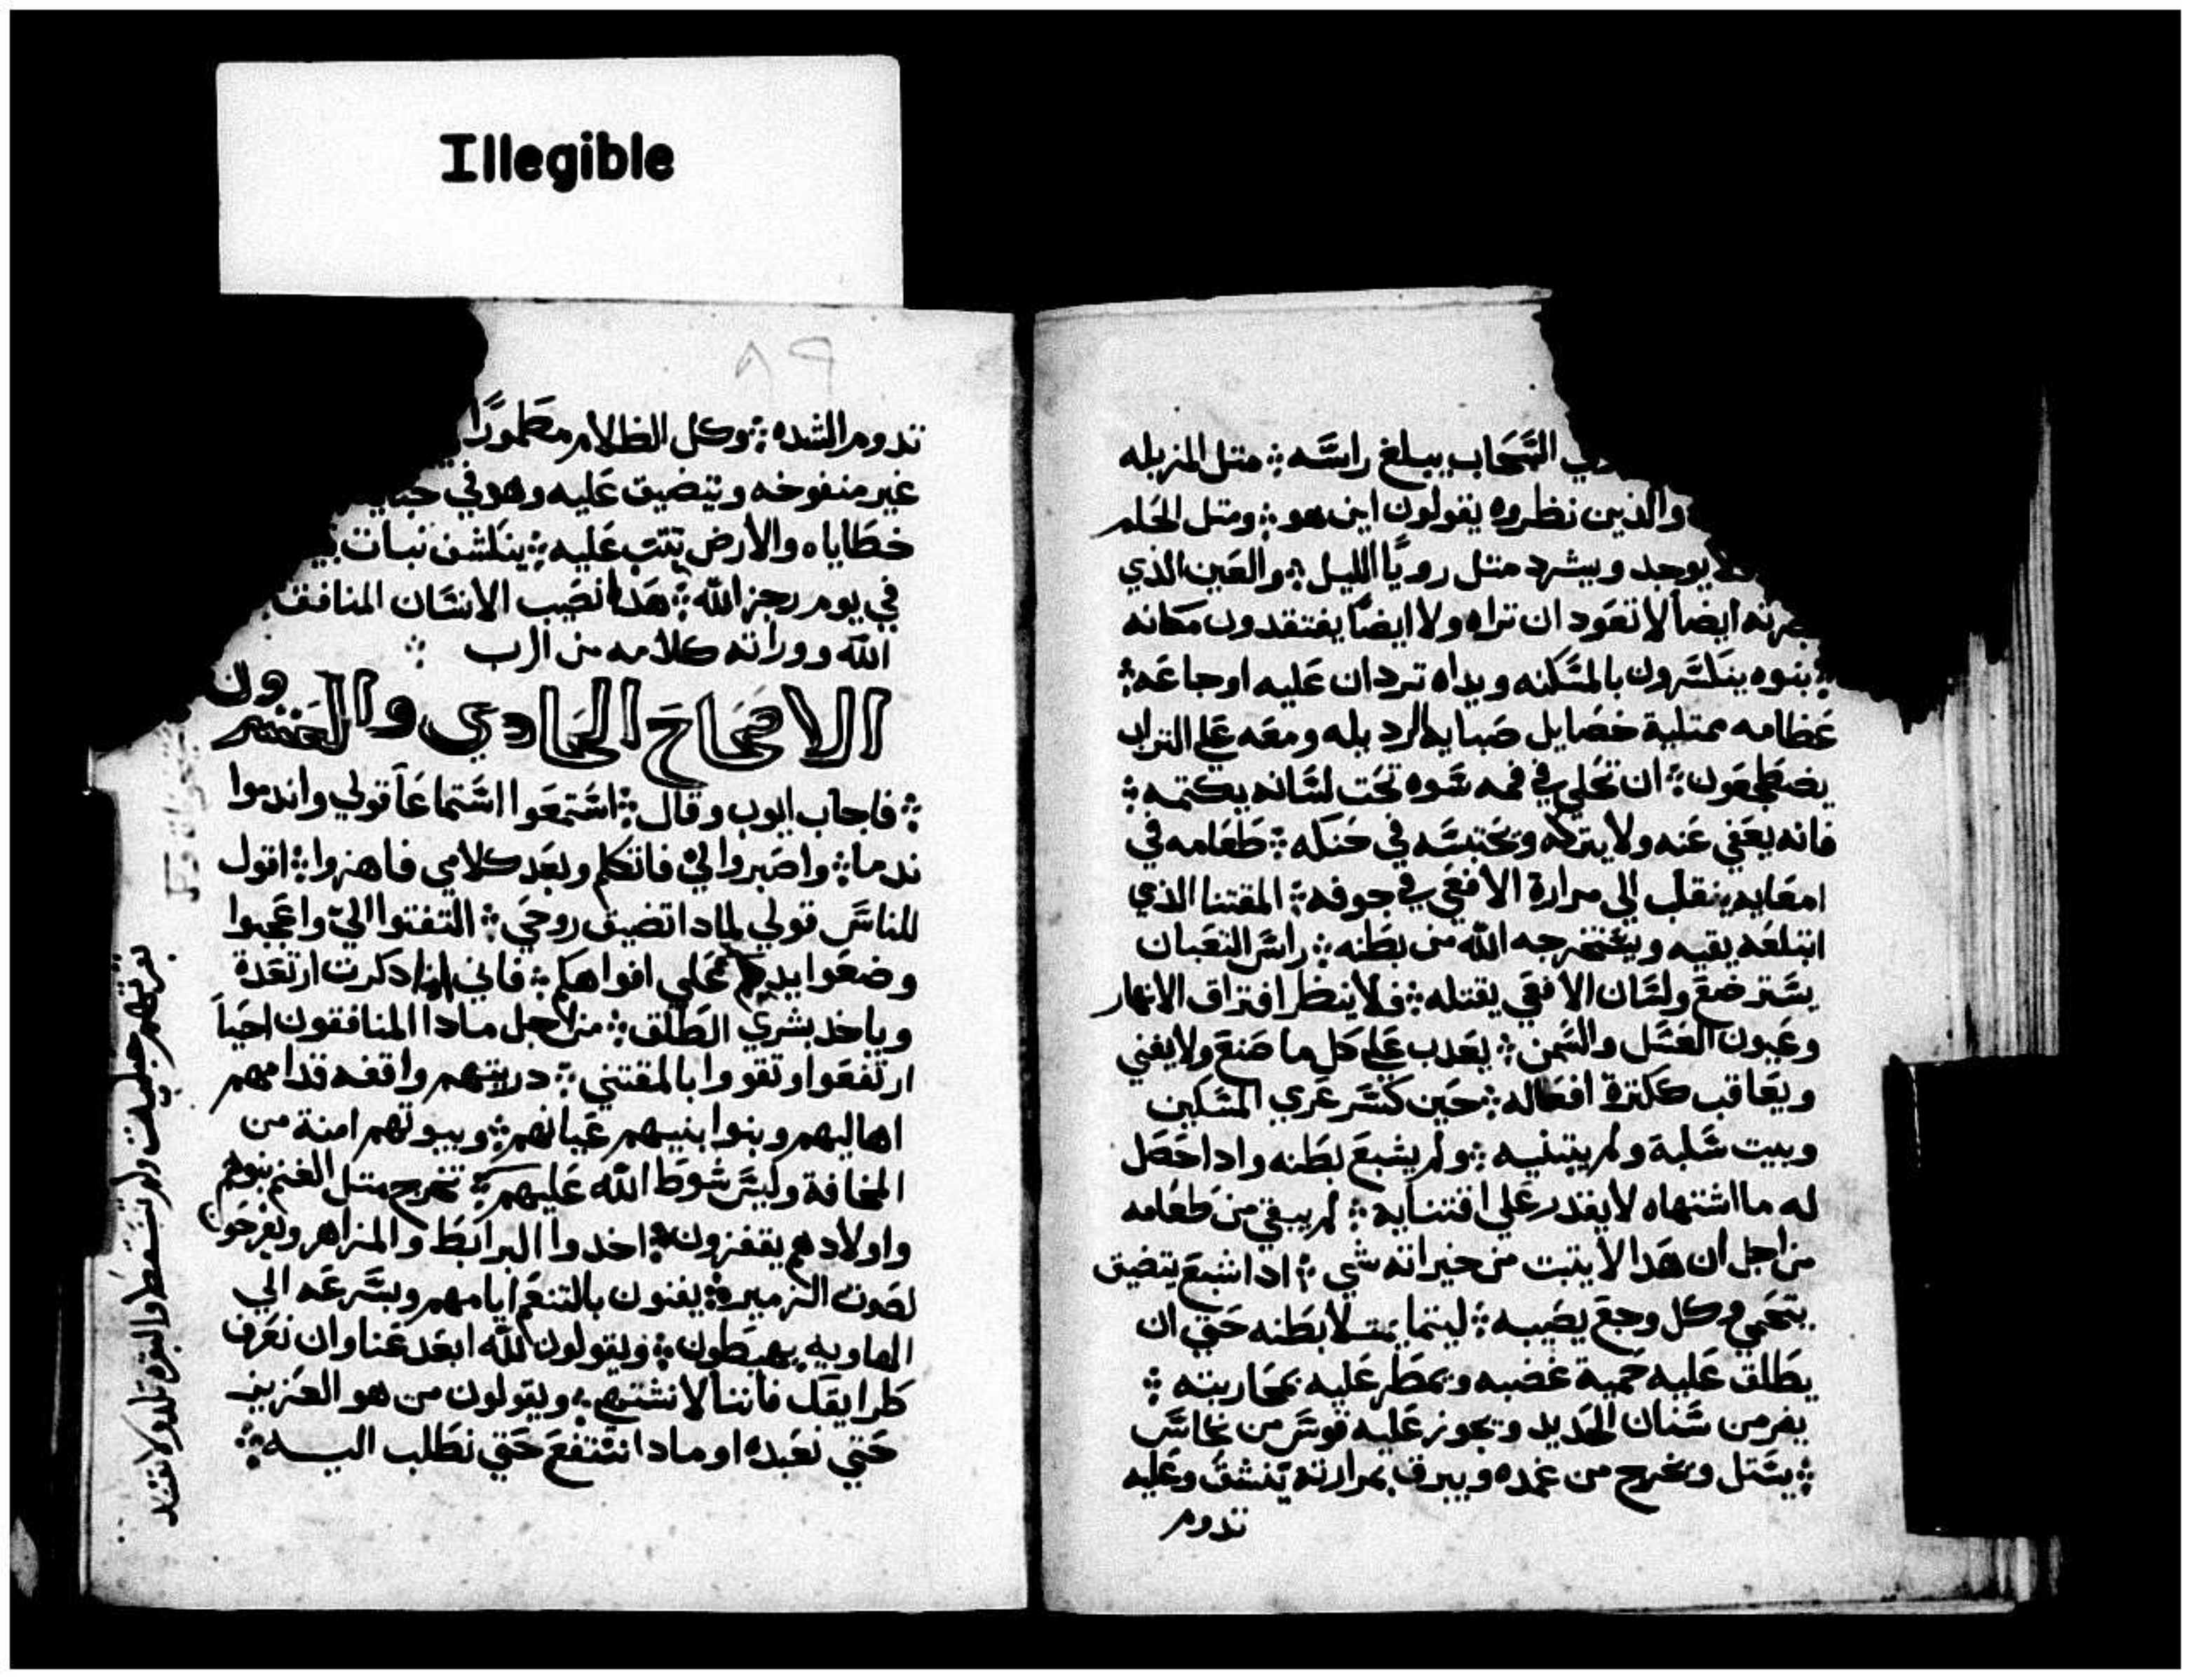 Illegible
السحاب يبلغ راسه ؛ متل المزبله
والذين نظروه يقولون اين هو ؛ ومتل الحلم
لا يوجد ويشرد متل رويا الليل ؛ والعين الذي
ايضا لا تعود ان تراه ولا ايضا يفتقدون مكانه
؛ بنوه ينكسرون بالمسكنه ويداه تردان عليه اوجاعه ؛
عظامه ممتلية خصايل صبايه الرديله ومعه على التراب
يضطجعون ؛ ان تحلي في فمه سوه تحت لسانه يكتمه ؛
فانه يعفي عنه ولا يتركه ويحتبسه في حنكه ؛ طعامه في
امعايه ينقلب الي مرارة الافعي في جوفه ؛ المقتنا الذي
ابتلعه يقيه ويستخرجه الله من بطنه ؛ راس التعبان
يسترضع ولسان الافعي يقتله ؛ فلا ينظر افتراق الانهار
وعيون العسل والسمن ؛ يعدب علي كل ما صنع ولا يفني
ويعاقب ككترة افعاله ؛ حين كسر عري المسكين
وبيت سلبه ولم يبتنيه ؛ ولم يشبع بطنه وادا حصل
له ما اشتهاه لا يقدر علي اقتنايه ؛ لم يبقي من طعامه
من اجل ان هدا لا يتبت من خيراته شي ؛ ادا شبع يتضيق
يتحمي وكل وجع يصيبه ؛ ليتما يمتلا بطنه حتي ان
يطلق عليه حمية غضبه ويمطر عليه بمحاربته ؛
يفر من سنان الحديد وتجوز عليه قوس من نحاس
؛ يستل ويخرج من غمده ويبرق بمرارته تنشق وعليه
تدوم
٨٩
تدوم الشده ؛ وكل الظلام مطمورًا
غير منفوخه ويتضيق عليه وهو في
خطاياه والارض تتب عليه ؛ ينكشف نبات
في يوم رجز الله ؛ هدا نصيب الانسان المنافق
الله ووراته كلامه من الرب ؛
الاصحاح الحادي والعشرون
؛ فاجاب ايوب وقال ؛ استمعوا استماعا قولي واندموا
ندما ؛ واصبروا لي فاتكلم وبعد كلامي فاهزوا ؛ اقول
للناس قولي لمادا تضيق روحي ؛ التفتوا الي واعجبوا
وضعوا يديكم علي افواهكم ؛ فاني ادا دكرت ارتعدة
وياخد بشري الطلق ؛ من اجل مادا المنافقون احيا
ارتفعوا وتقووا بالمقتني ؛ دريتهم واقفه قدامهم
اهاليهم وبنوا بنيهم عيانهم ؛ وبيوتهم امنة من
المخافة وليس سوط الله عليهم ؛ تخرج متل الغنم بنوهم
واولادهم يقفزون ؛ اخدوا البرابط والمزاهر ويفرحون
لصوت الزميرة ؛ يفنون بالتنعم ايامهم وبسرعه الي
الهاويه يهبطون ؛ ويقولون لله ابعد عنا وان نعرف
طرايقك فاننا لا نشتهي ؛ ويقولون من هو العزيز
حتي نعبده او مادا ننتفع حتي نطلب اليه ؛
بقرتهم حبلت ولم تسقط والبقره تلد ولا تفتقد